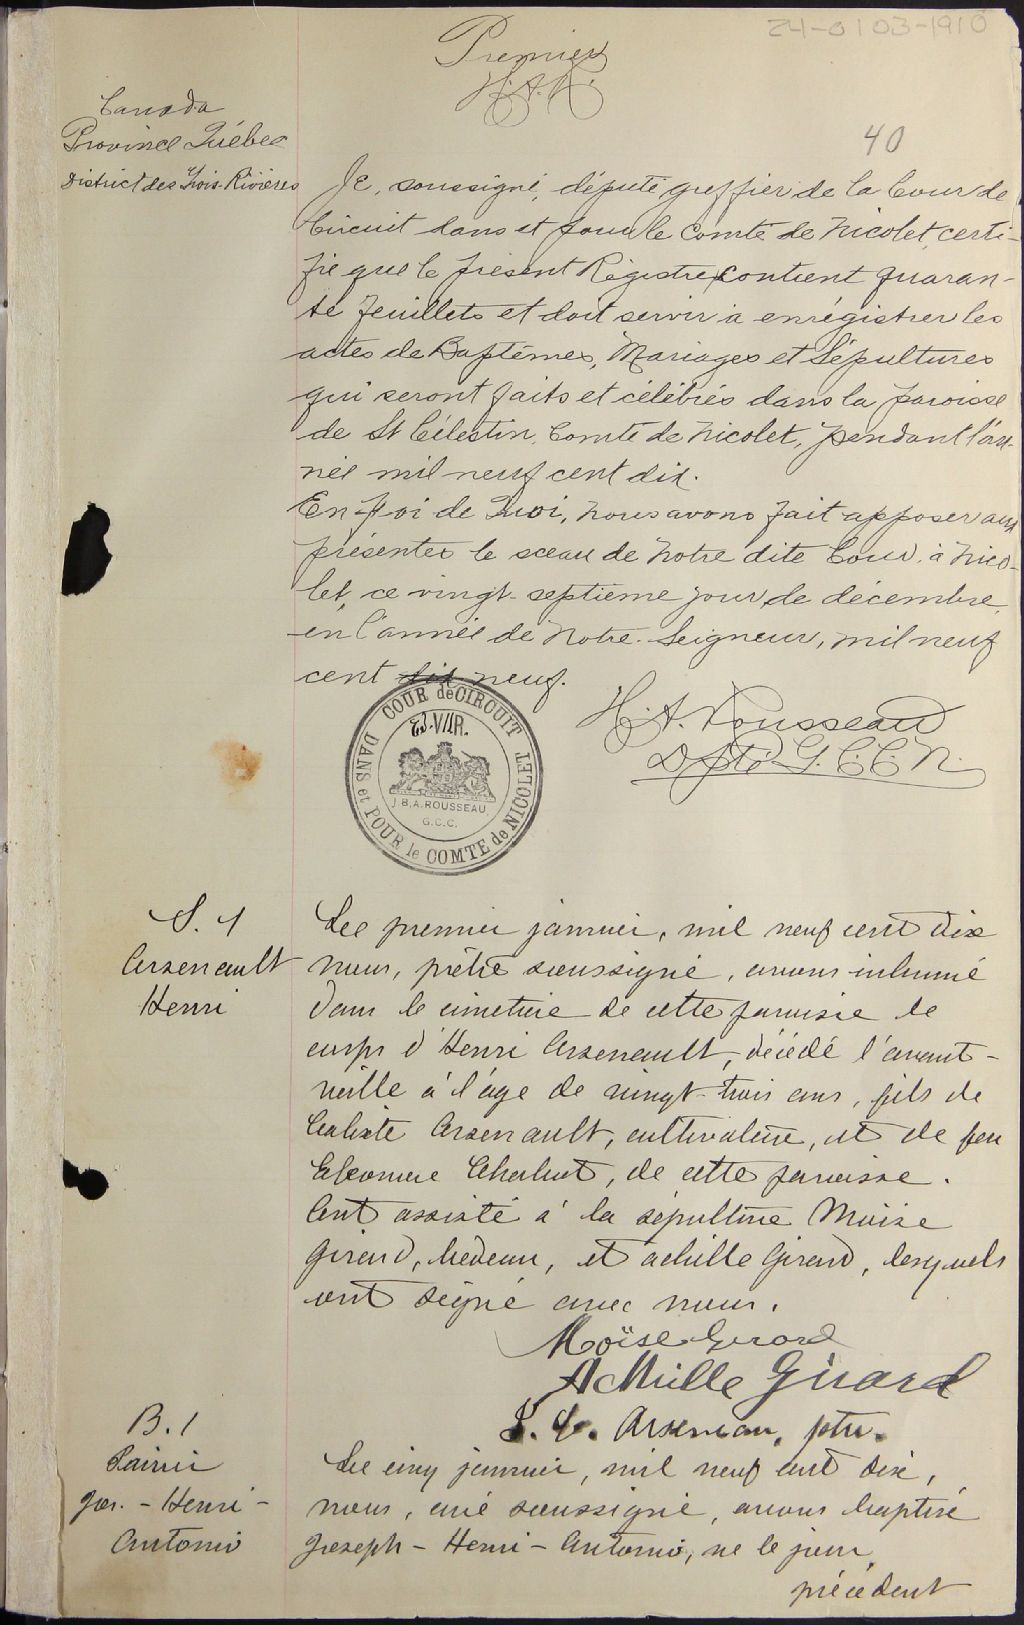 24-0103-1910
Premier
H.A.R.
40
Canada
Province Québec
District des Trois-Rivières
Je, soussigné, député greffier de la Cour de
Circuit dans et pour le Comté de Nicolet, certi-
fie que le présent Régistre contient quaran-
te feuillets et doit servir à enrégistrer les
actes de Baptêmes, Mariages et Sépultures
qui seront faits et célébrés dans la paroisse
de St Célestin, Comté de Nicolet, pendant l'an-
née mil neuf cent dix.
En foi de Quoi, nous avons fait apposer aux
présentes le sceau de Notre dite Cour, à Nico-
let, ce vingt-septième jour de décembre,
en l'année de Notre-Seigneur, mil neuf
cent dix neuf.
H. A. Rousseau
Dpté G.C.C.N.
COUR de CIRCUIT DANS et POUR le COMTE de NICOLET
J.B.A. ROUSSEAU
G.C.C.
S. 1
Arsenault
Henri
Le premier janvier, mil neuf cent dix
nous, prêtre soussigné, avons inhumé
dans le cimetière de cette paroisse le
corps d'Henri Arsenault, décédé l'avant-
veille à l'âge de vingt-trois ans, fils de
Calixte Arsenault, cultivateur, et de feu
de cette paroisse.
Ont assisté à la sépulture Moïse
Girard, bedeau, et Achille Girard, lesquels
ont signé avec nous.
Moïse Girard
Achille Girard
Arseneau, ptre.
B. 1
Jos. - Henri -
Antonio
Le cinq janvier, mil neuf cent dix,
nous, curé soussigné, avons baptisé
Joseph - Henri - Antonio, né le jour
précédent